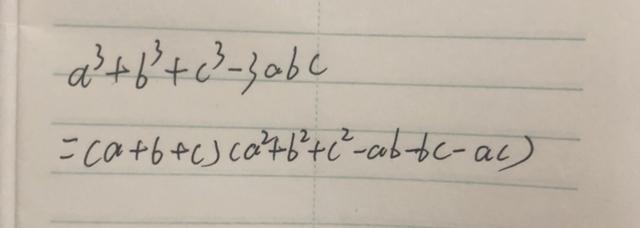 a³+b³+c³-3abc
=(a+b+c)(a²+b²+c²-ab-bc-ac)